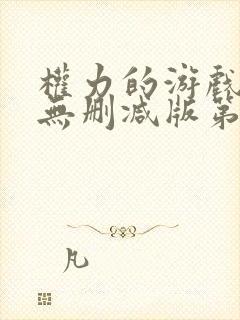 權力的游戲
無刪減版第
凡